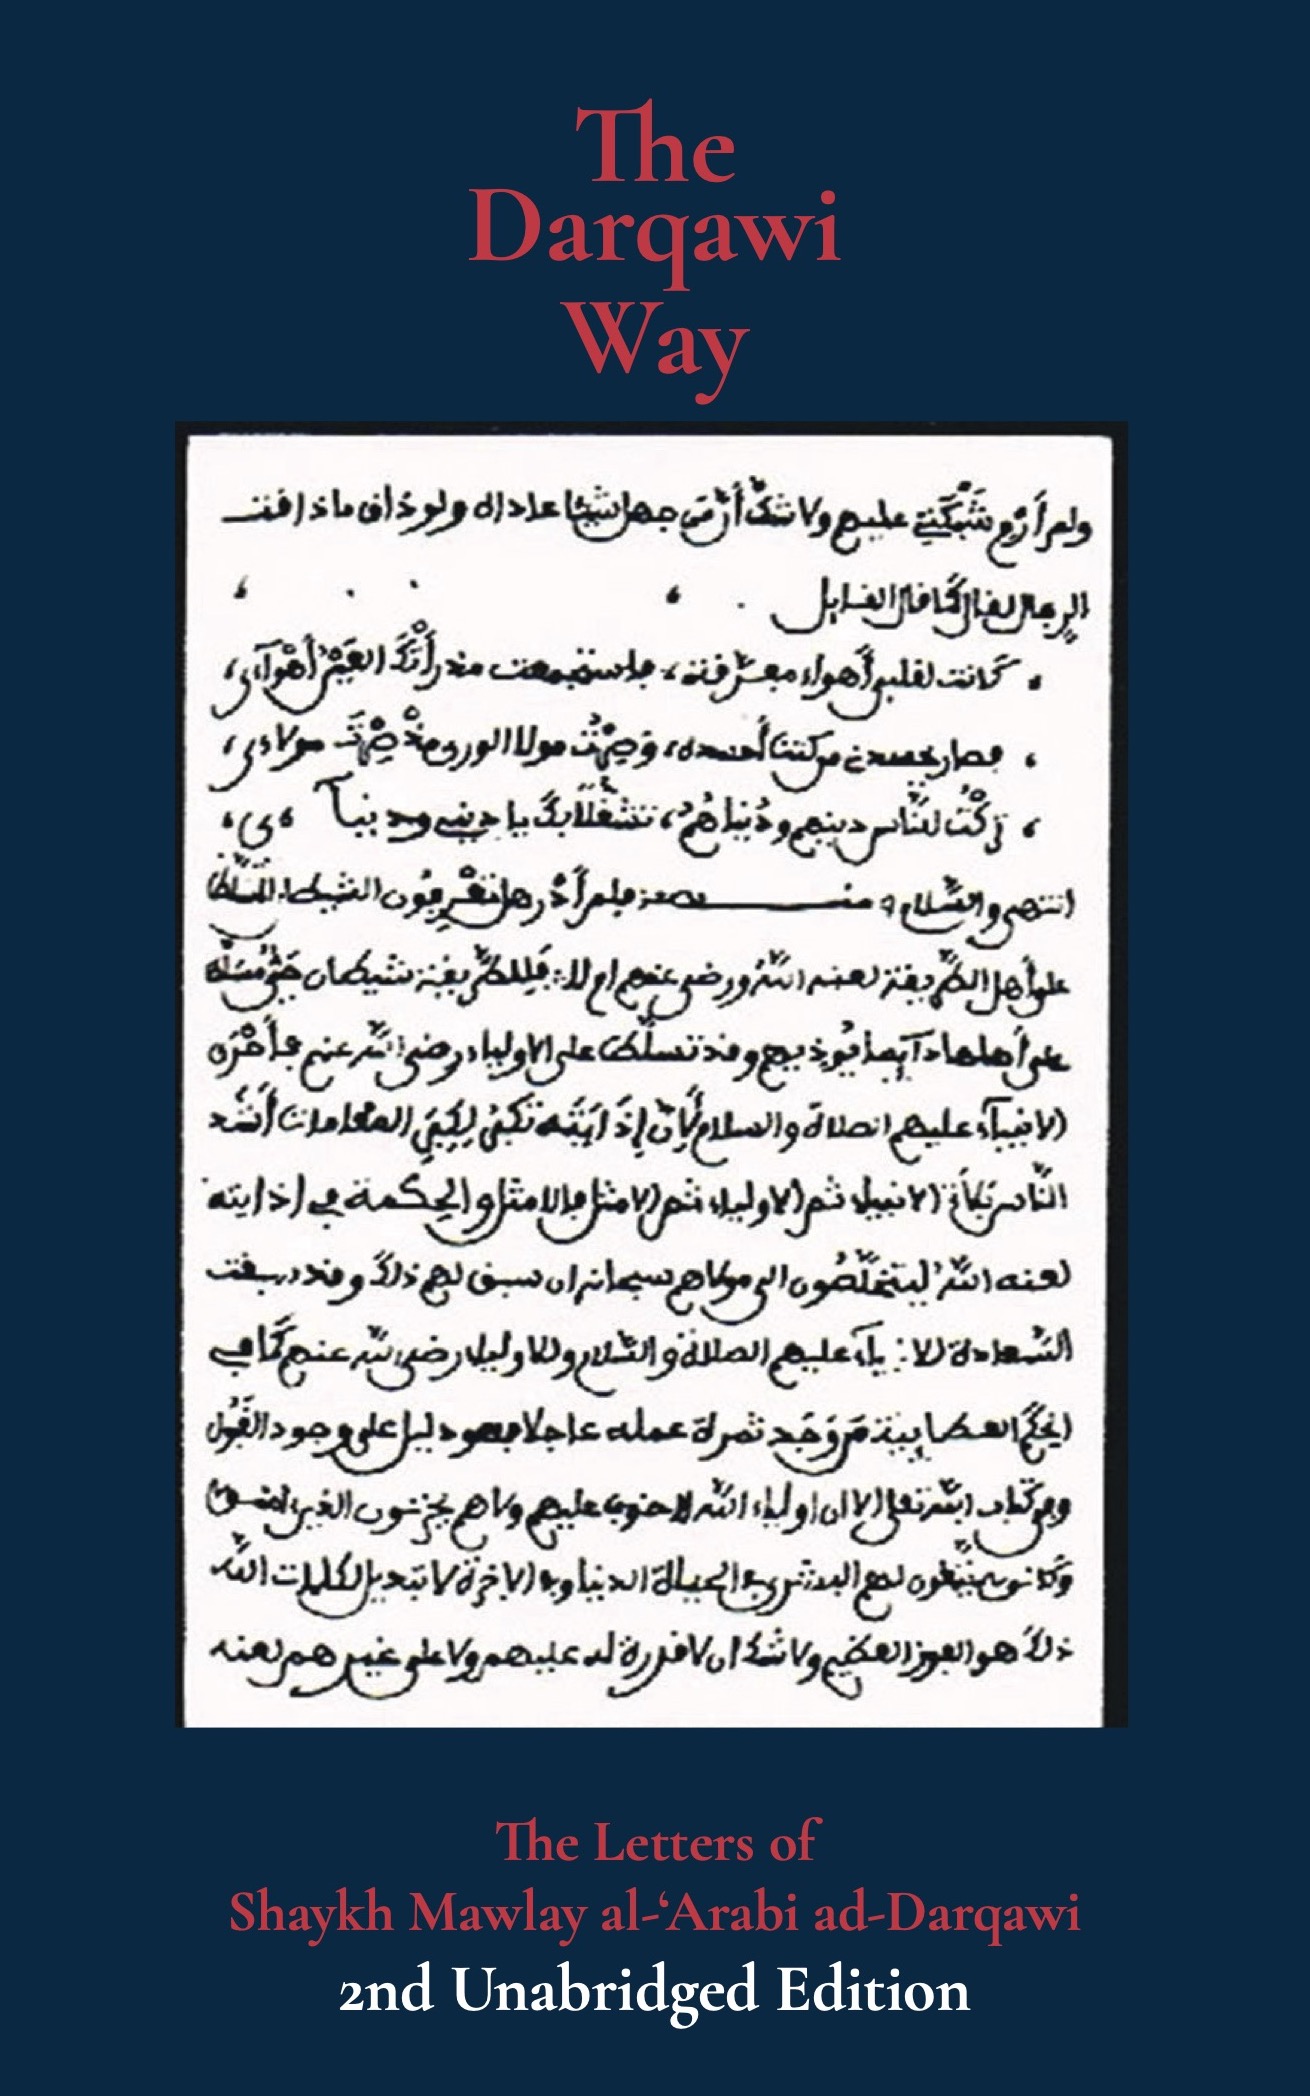 The
Darqawi
Way
الرجال لقال كما قال القايل
كانت لقلبي أهواء مفرقة، فاستجمعت مذ رأتك العين أهوآءي،
فصار يحسدني من كنت أحسده، وصرت مولا الورى مذ صرت مولاءي،
تركت للناس دينهم ودنياهم، تشغلا بك يا ديني ودنيآءي،
انتهى والسلام ومنه فلم أدر هل تفرقون الشيطان
على أهل الطريقة لعنه الله ورضي عنهم ام لا فللطريقة شيطان
على أهلها دآيما يوذيهم وقد تسلط على الاولياء رضي الله عنهم
الانبيآء عليهم الصلاة والسلام لأن إذايته تكون المقامات أشد
الناس بلاء الانبياء ثم الاولياء ثم الامثل فالامثل والحكمة في إذايته
لعنه الله ليتخلصون الى مولاهم سبحانه ان سبق لهم ذلك وقد سبقت
السعادة للانبيآء عليهم الصلاة والسلام وللاولياء رضي الله عنهم كما في
الحكم العطايية من وجد ثمرة عمله عاجلا فهو دليل على وجود القبول
وفي كتاب الله تعالى الا ان اولياء الله لا خوف عليهم ولا هم يحزنون الذين امنوا
وكانوا يتقون لهم البشرى في الحياة الدنيا وفي الاخرة لا تبديل لكلمات الله
ذلك هو الفوز العظيم ولا شك ان لا قدرة له عليهم ولا على غيرهم لعنه
The Letters of
Shaykh Mawlay al-‘Arabi ad-Darqawi
2nd Unabridged Edition